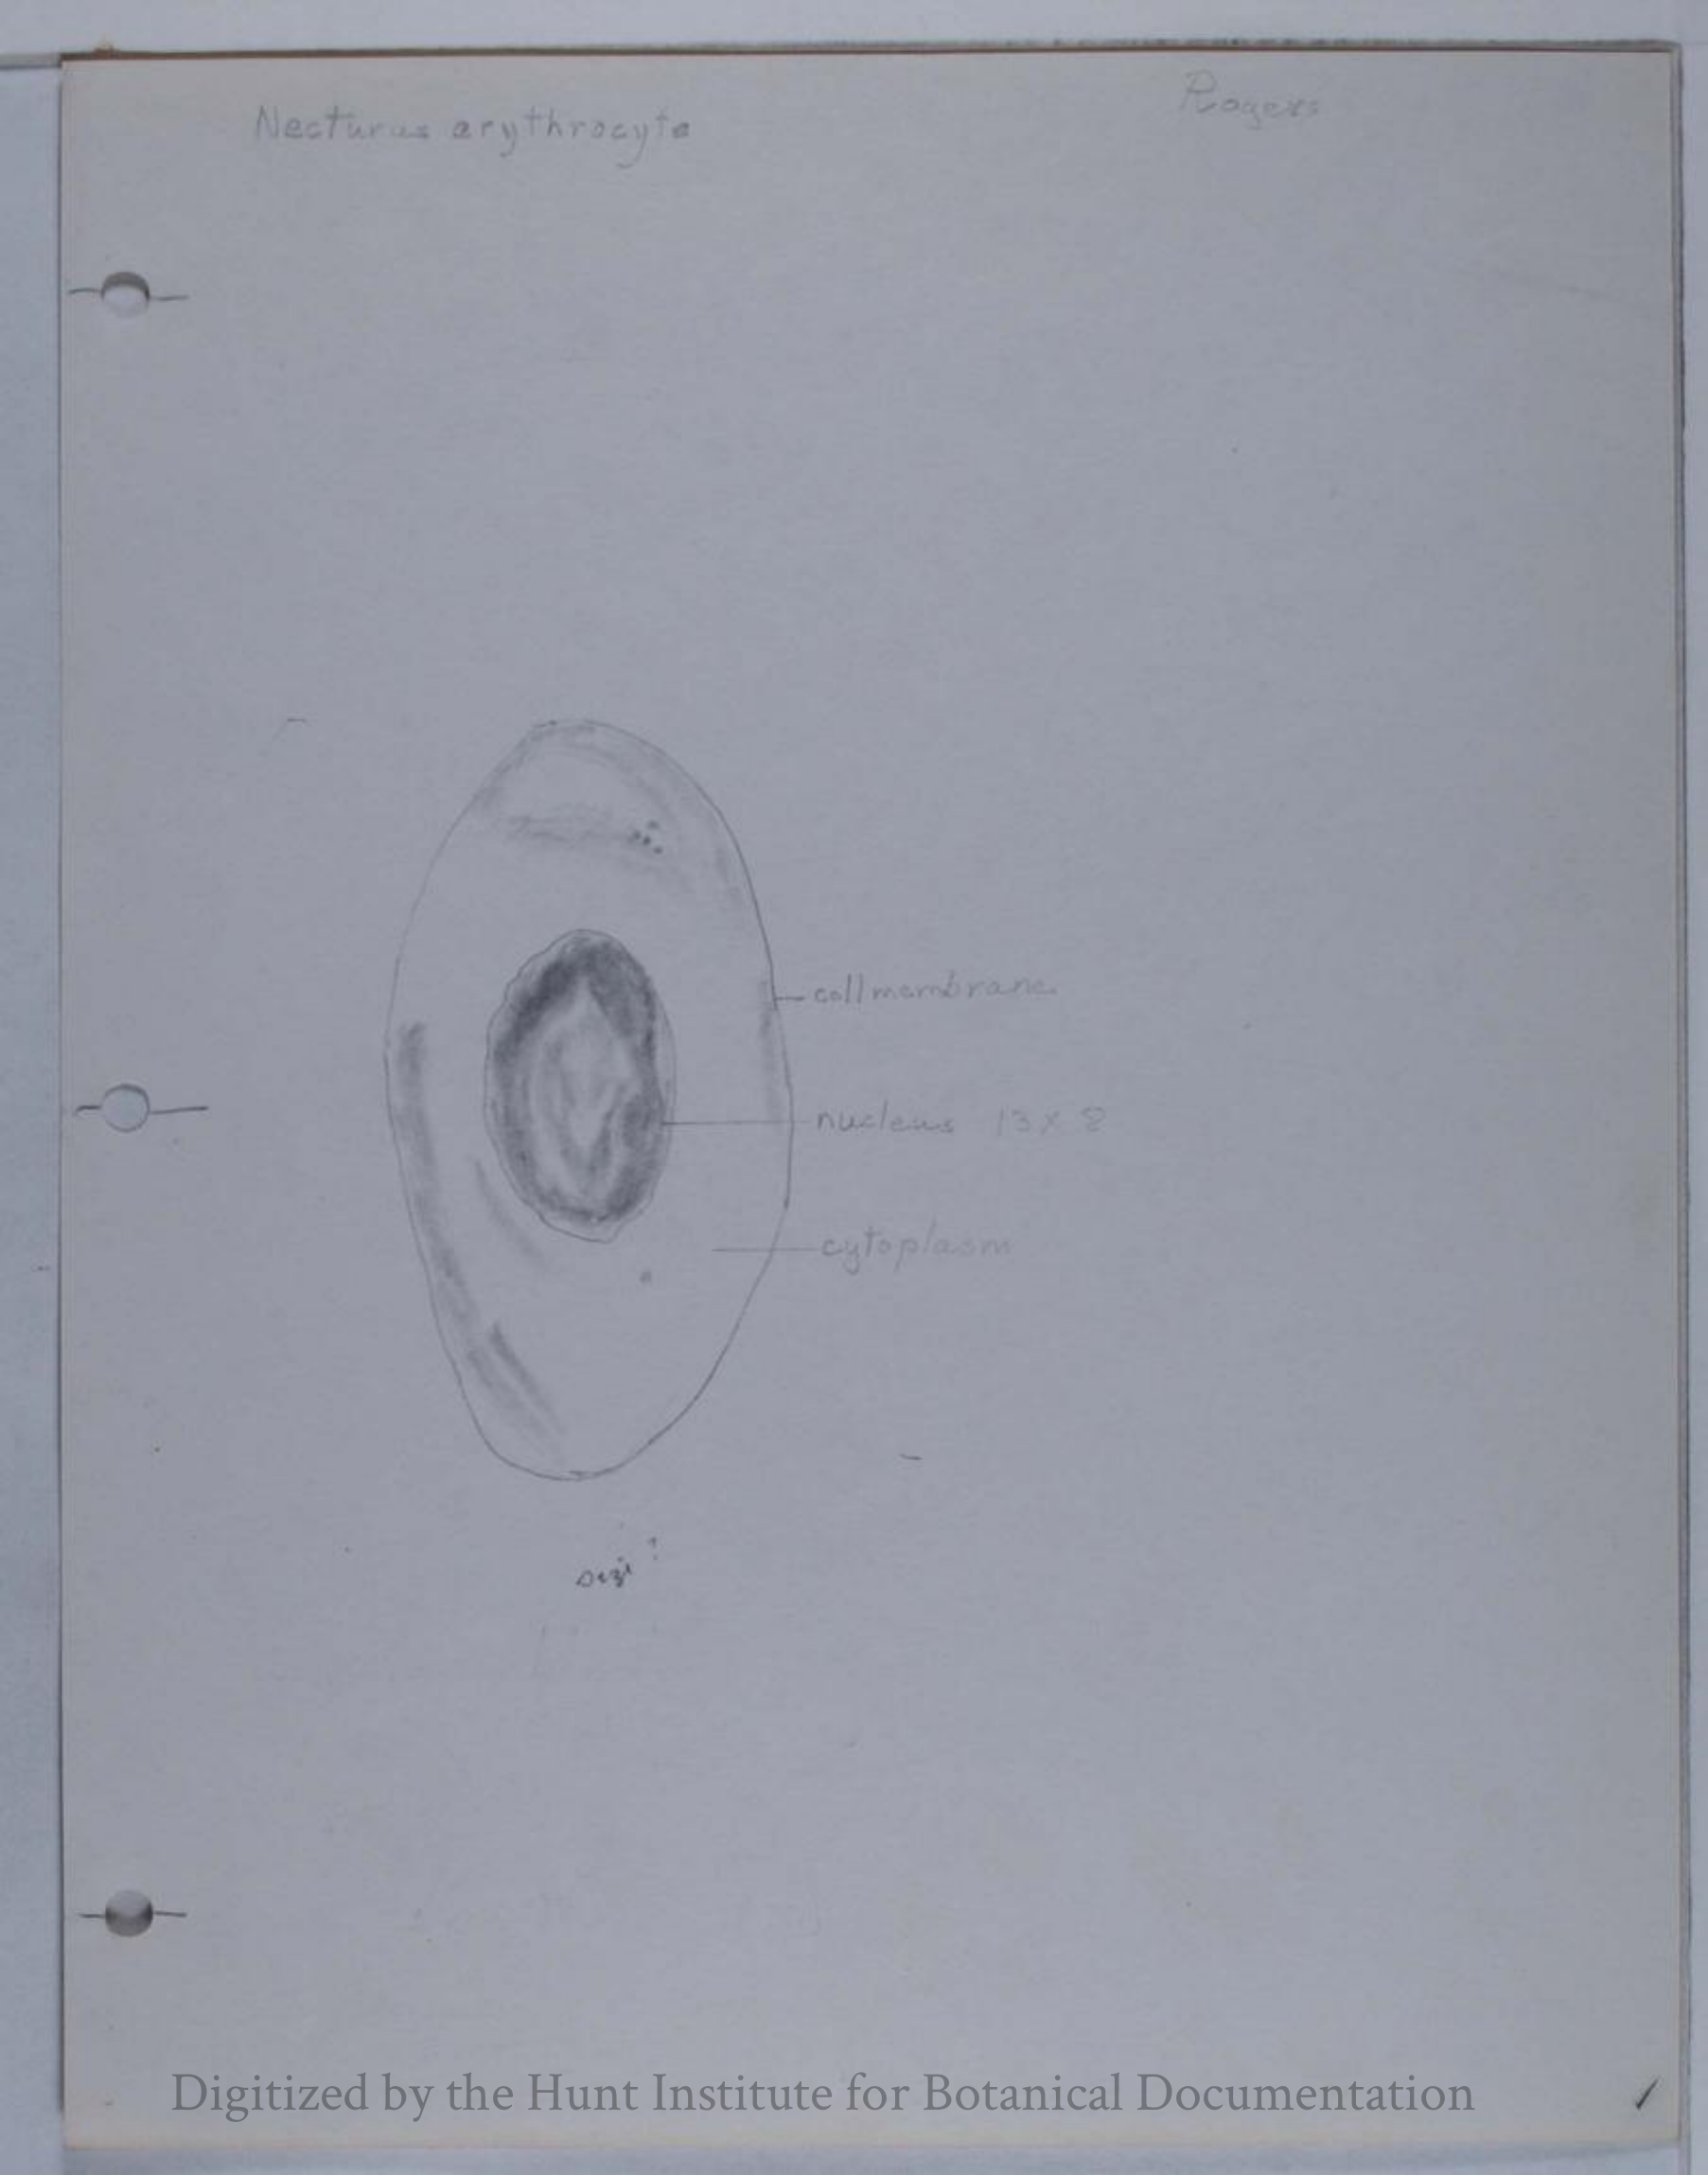 Necturus erythrocyte
Rogers
cell membrane
nucleus 13 x 8
cytoplasm
size?
Digitized by the Hunt Institute for Botanical Documentation